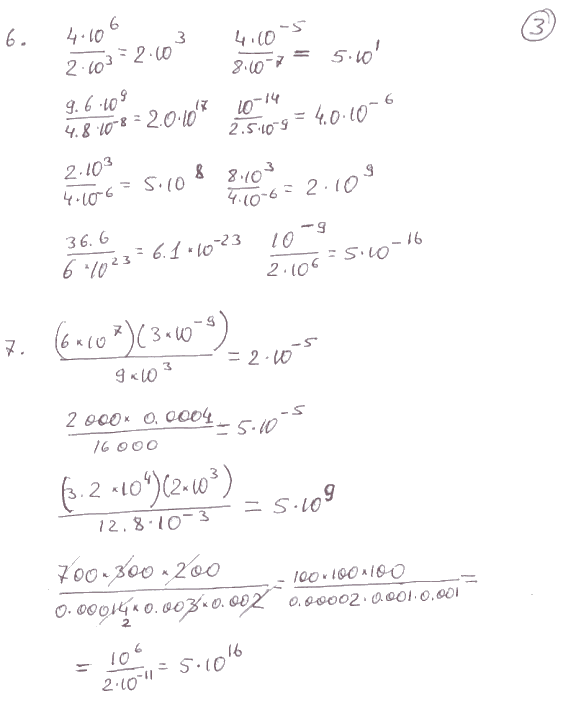 ③
6. 4·10⁶/2·10³ = 2·10³   4·10⁻⁵/8·10⁻⁷ = 5·10¹
9.6·10⁹/4.8·10⁻⁸ = 2.0·10¹⁷   10⁻¹⁴/2.5·10⁻⁹ = 4.0·10⁻⁶
2·10³/4·10⁻⁶ = 5·10⁸   8·10³/4·10⁻⁶ = 2·10⁹
36.6/6·10²³ = 6.1·10⁻²³   10⁻⁹/2·10⁶ = 5·10⁻¹⁶
7. (6×10⁷)(3×10⁻⁹)/9×10³ = 2·10⁻⁵
2000×0.0004/16000 = 5·10⁻⁵
(3.2×10⁴)(2×10³)/12.8·10⁻³ = 5·10⁹
700×300×200/0.00014×0.003×0.002 = 100×100×100/0.00002·0.001·0.001 =
2
= 10⁶/2·10⁻¹¹ = 5·10¹⁶